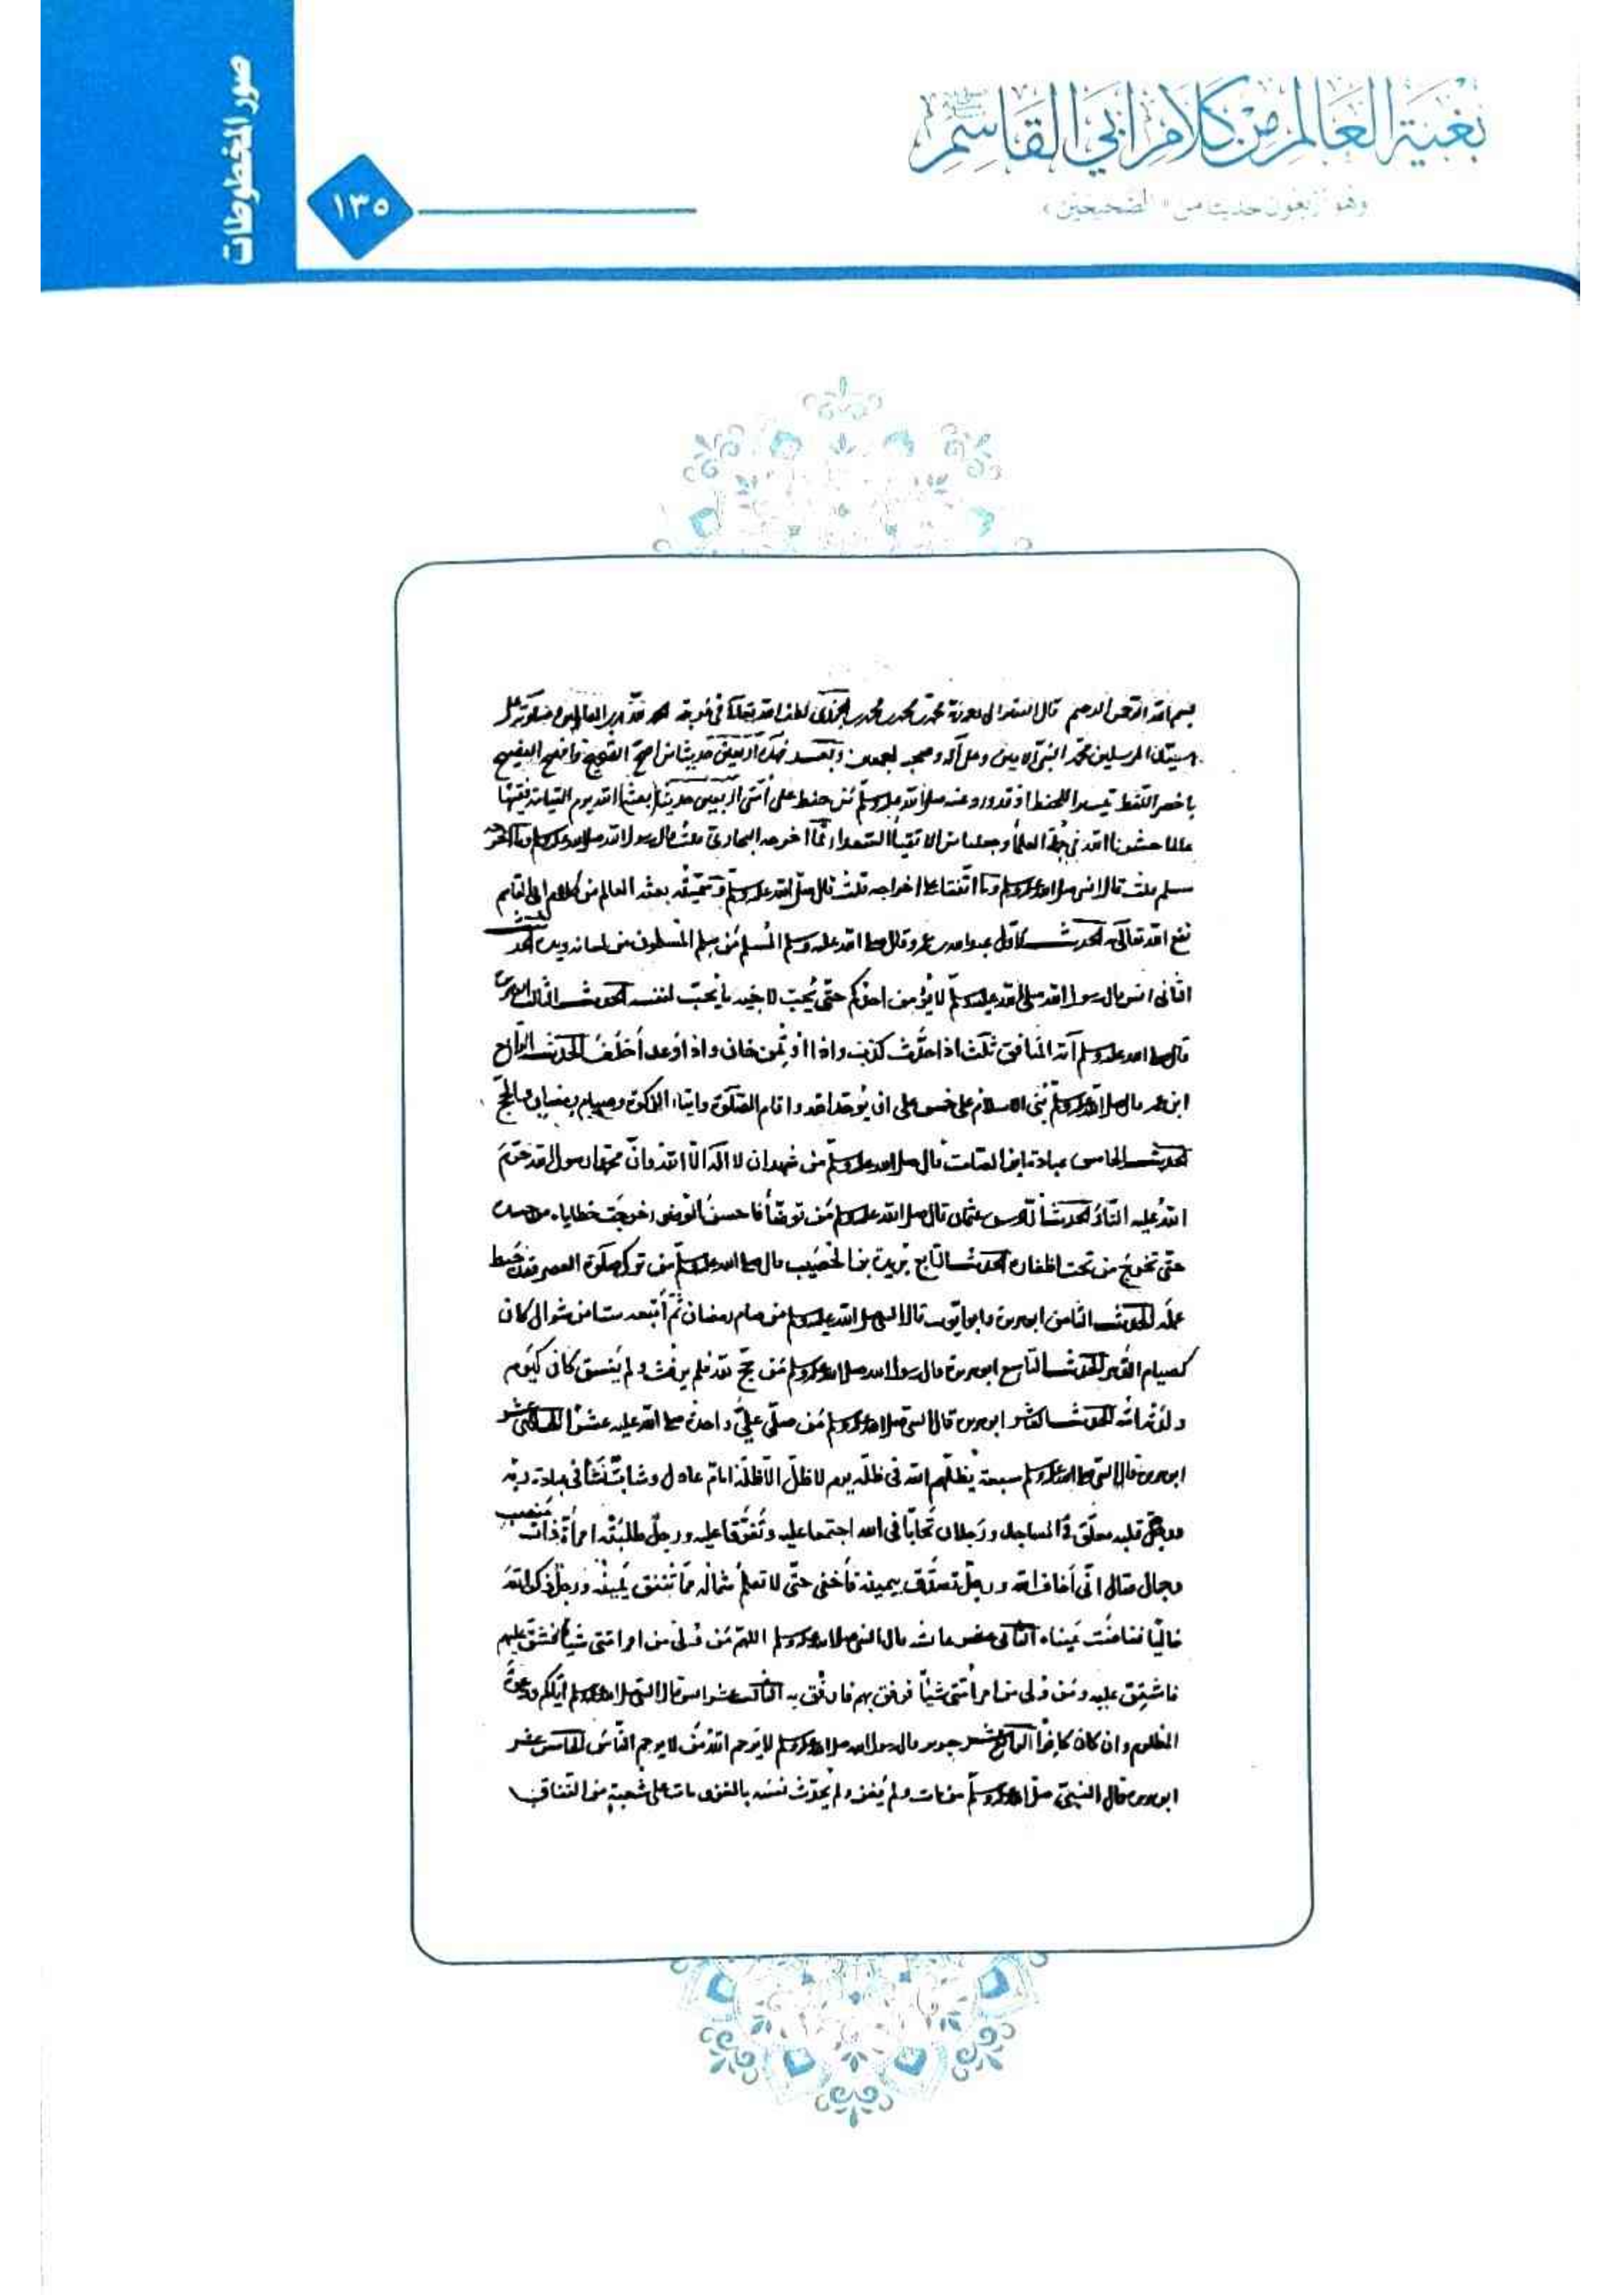 صور المخطوطات
١٣٥
بغية العالم من كلام أبي القاسم ﷺ
وهو أربعون حديثا من «الصحيحين»
بسم الله الرحمن الرحيم قال الفقير الى محمد بن محمد بن محمد بن الجزرى لطف الله تعالى فى الحمد لله رب العالمين على
سيدنا المرسلين محمد النبى الامين وعلى آله وصحبه اجمعين وبعد فهذه اربعين حديثا من اصح الصحيح وافصح الفصيح
باخصر اللفظ تيسيرا للحفظ اذ قد ورد عنه صلى الله عليه وسلم من حفظ على امتى اربعين حديثا بعثه الله يوم القيامة فقيها
عالما حشرنا الله فى العلماء وجعلنا من الاتقياء السعداء فما اخرجه البخارى قلت قال رسول الله صلى الله عليه وسلم وما اخرجه
مسلم قلت قال النبى صلى الله عليه وسلم وما اتفقا على اخراجه قلت قال صلى الله عليه وسلم وسميته بغية العالم من كلام ابى القاسم
نفع الله تعالى به الحديث الاول عبد الله بن عمرو قال صلى الله عليه وسلم المسلم من سلم المسلمون من لسانه ويده الحديث
الثانى انس قال رسول الله صلى الله عليه وسلم لا يؤمن احدكم حتى يحب لاخيه ما يحب لنفسه الحديث الثالث ابو هريرة
قال صلى الله عليه وسلم آية المنافق ثلث اذا حدث كذب واذا اؤتمن خان واذا وعد أخلف الحديث الرابع
ابن عمر قال صلى الله عليه وسلم بنى الاسلام على خمس على ان يوحد الله واقام الصلوة وايتاء الزكوة وصيام رمضان والحج
الحديث الخامس عبادة ابن الصامت قال صلى الله عليه وسلم من شهد ان لا اله الا الله وان محمدا رسول الله حرم
الله عليه النار الحديث السادس عثمان قال صلى الله عليه وسلم من توضأ فاحسن الوضوء خرجت خطاياه من جسده
حتى تخرج من تحت اظفاره الحديث السابع بريدة بن الحصيب قال صلى الله عليه وسلم من ترك صلوة العصر فقد حبط
عمله الحديث الثامن ابو هريرة وابو ايوب قالا النبى صلى الله عليه وسلم من صام رمضان ثم أتبعه ستا من شوال كان
كصيام الدهر الحديث التاسع ابو هريرة قال رسول الله صلى الله عليه وسلم من حج لله فلم يرفث ولم يفسق كان كيوم
ولدته امه الحديث العاشر ابو هريرة قال النبى صلى الله عليه وسلم من صلى على واحدة صلى الله عليه عشرا الحادى عشر
ابو هريرة قال النبى صلى الله عليه وسلم سبعة يظلهم الله فى ظله يوم لا ظل الا ظله امام عادل وشاب نشأ فى عبادة ربه
ورجل قلبه معلق فى المساجد ورجلان تحابا فى الله اجتمعا عليه وتفرقا عليه ورجل طلبته امرأة ذات منصب
وجمال فقال انى أخاف الله ورجل تصدق بيمينه فأخفى حتى لا تعلم شماله ما تنفق يمينه ورجل ذكر الله
خاليا ففاضت عيناه الثانى عشر عائشة قال النبى صلى الله عليه وسلم اللهم من ولى من امر امتى شيا فشق عليهم
فاشقق عليه ومن ولى من امر امتى شيا فرفق بهم فارفق به الثالث عشر انس قال النبى صلى الله عليه وسلم اياكم ودعوة
المظلوم وان كان كافرا الرابع عشر جرير قال رسول الله صلى الله عليه وسلم لا يرحم الله من لا يرحم الناس الخامس عشر
ابو هريرة قال النبى صلى الله عليه وسلم من مات ولم يغز ولم يحدث نفسه بالغزو مات على شعبة من النفاق